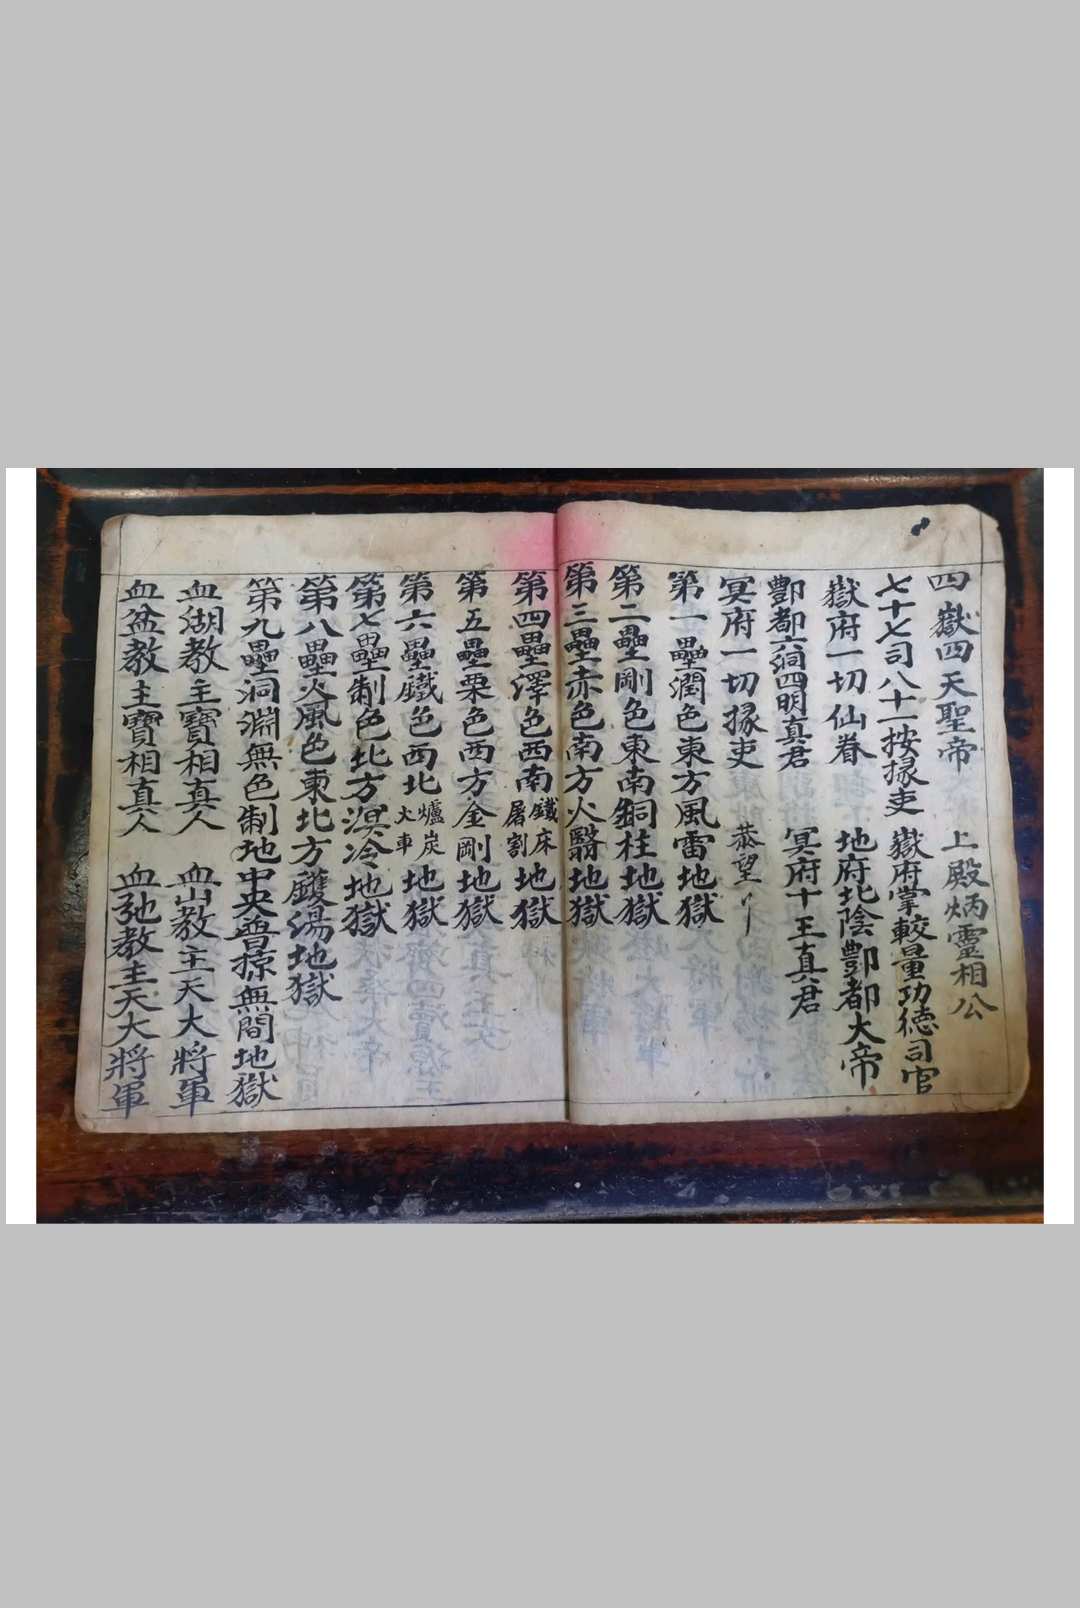 四嶽四天聖帝　上殿炳靈相公
七十七司八十一按掾吏　嶽府掌較量功德司官
嶽府一切仙眷　地府北陰酆都大帝
酆都六洞四明真君　冥府十王真君
冥府一切掾吏　恭望
第一壘潤色東方風雷地獄
第二壘剛色東南銅柱地獄
第三壘赤色南方火翳地獄
第四壘澤色西南鐵床屠割地獄
第五壘栗色西方金剛地獄
第六壘鐵色西北爐炭火車地獄
第七壘制色北方溟冷地獄
第八壘火風色東北方鑊湯地獄
第九壘洞淵無色制地中央普掠無間地獄
血湖教主寶相真人　血山教主天大將軍
血盆教主寶相真人　血池教主天大將軍